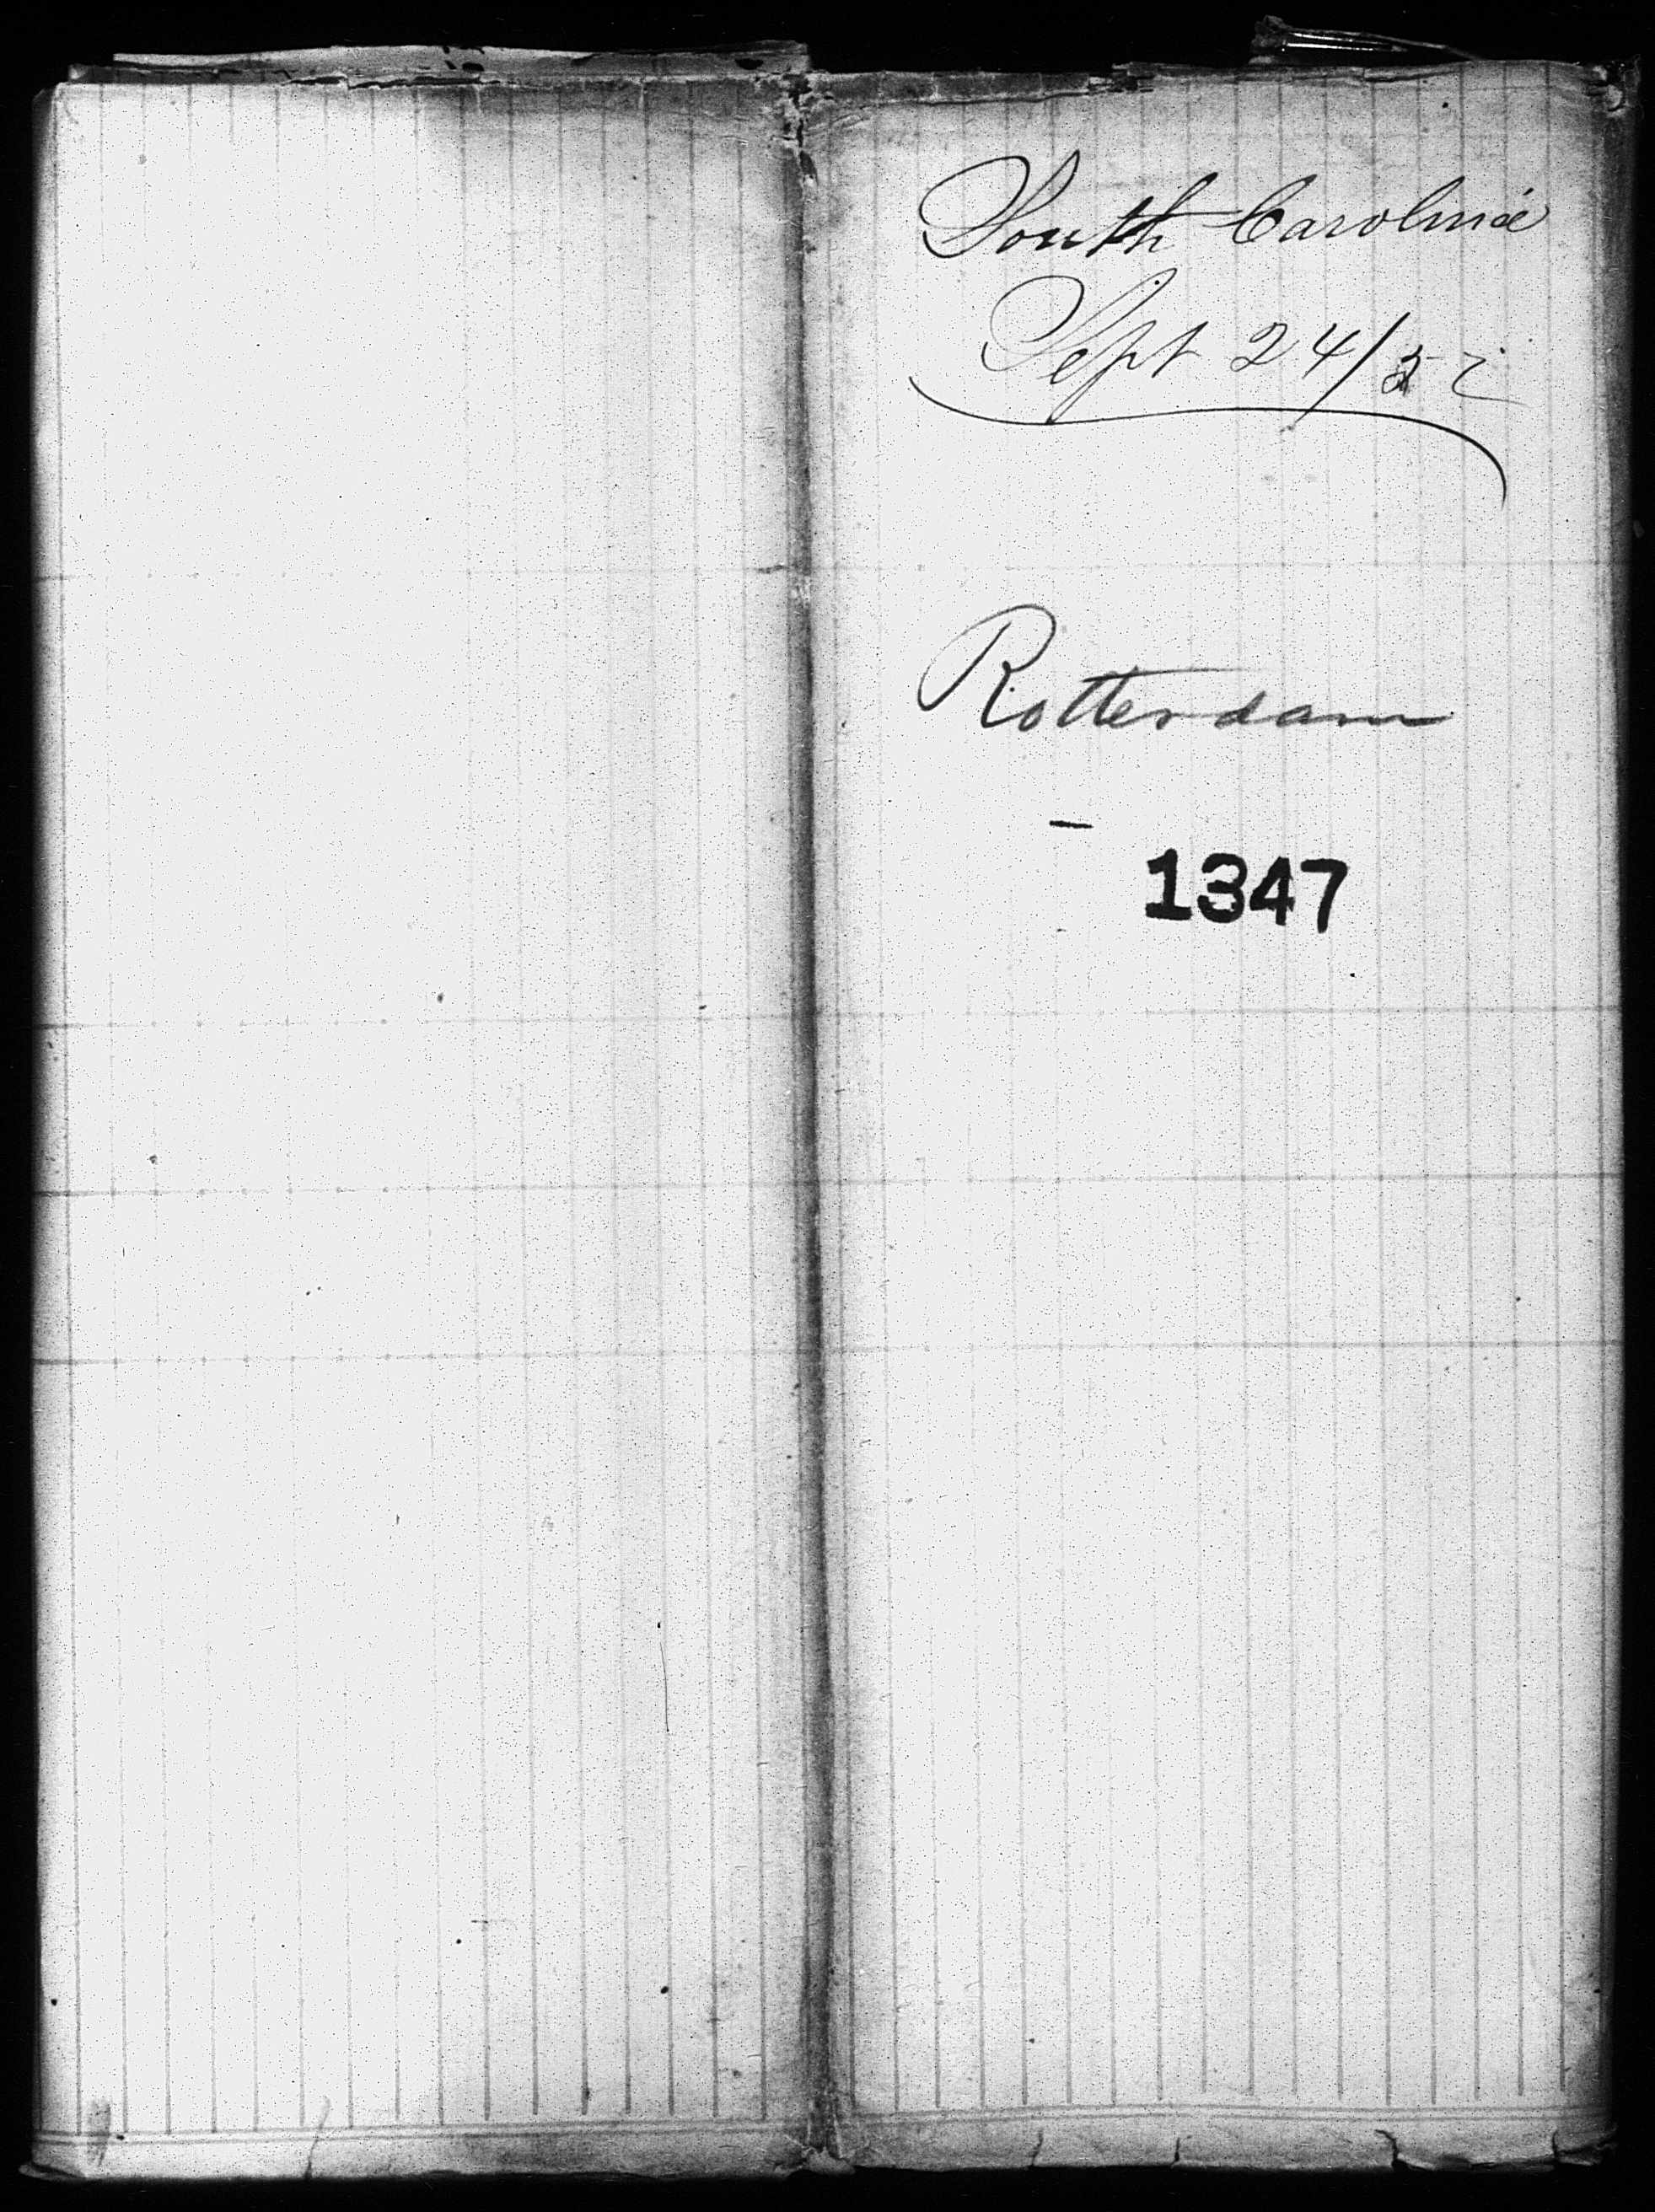 South Carolina
Sept 24/52
Rotterdam
1347